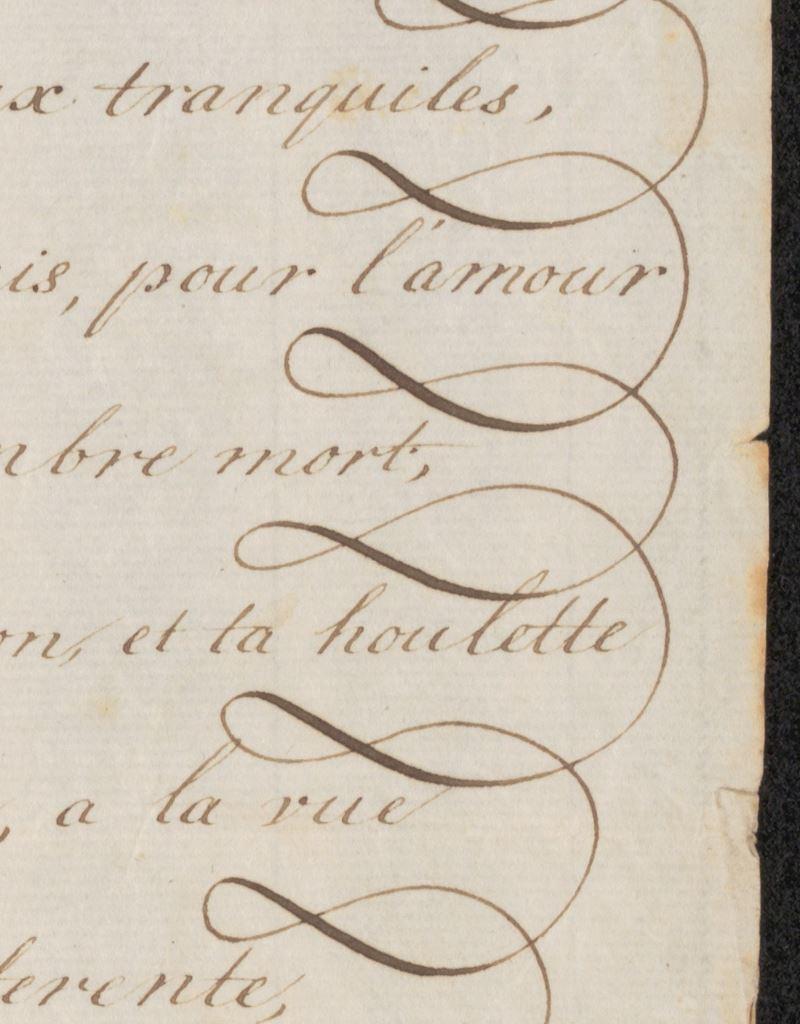 ux tranquiles,
is, pour l'amour
mbre mort,
on, et ta houlette
, a la vue
ferente,